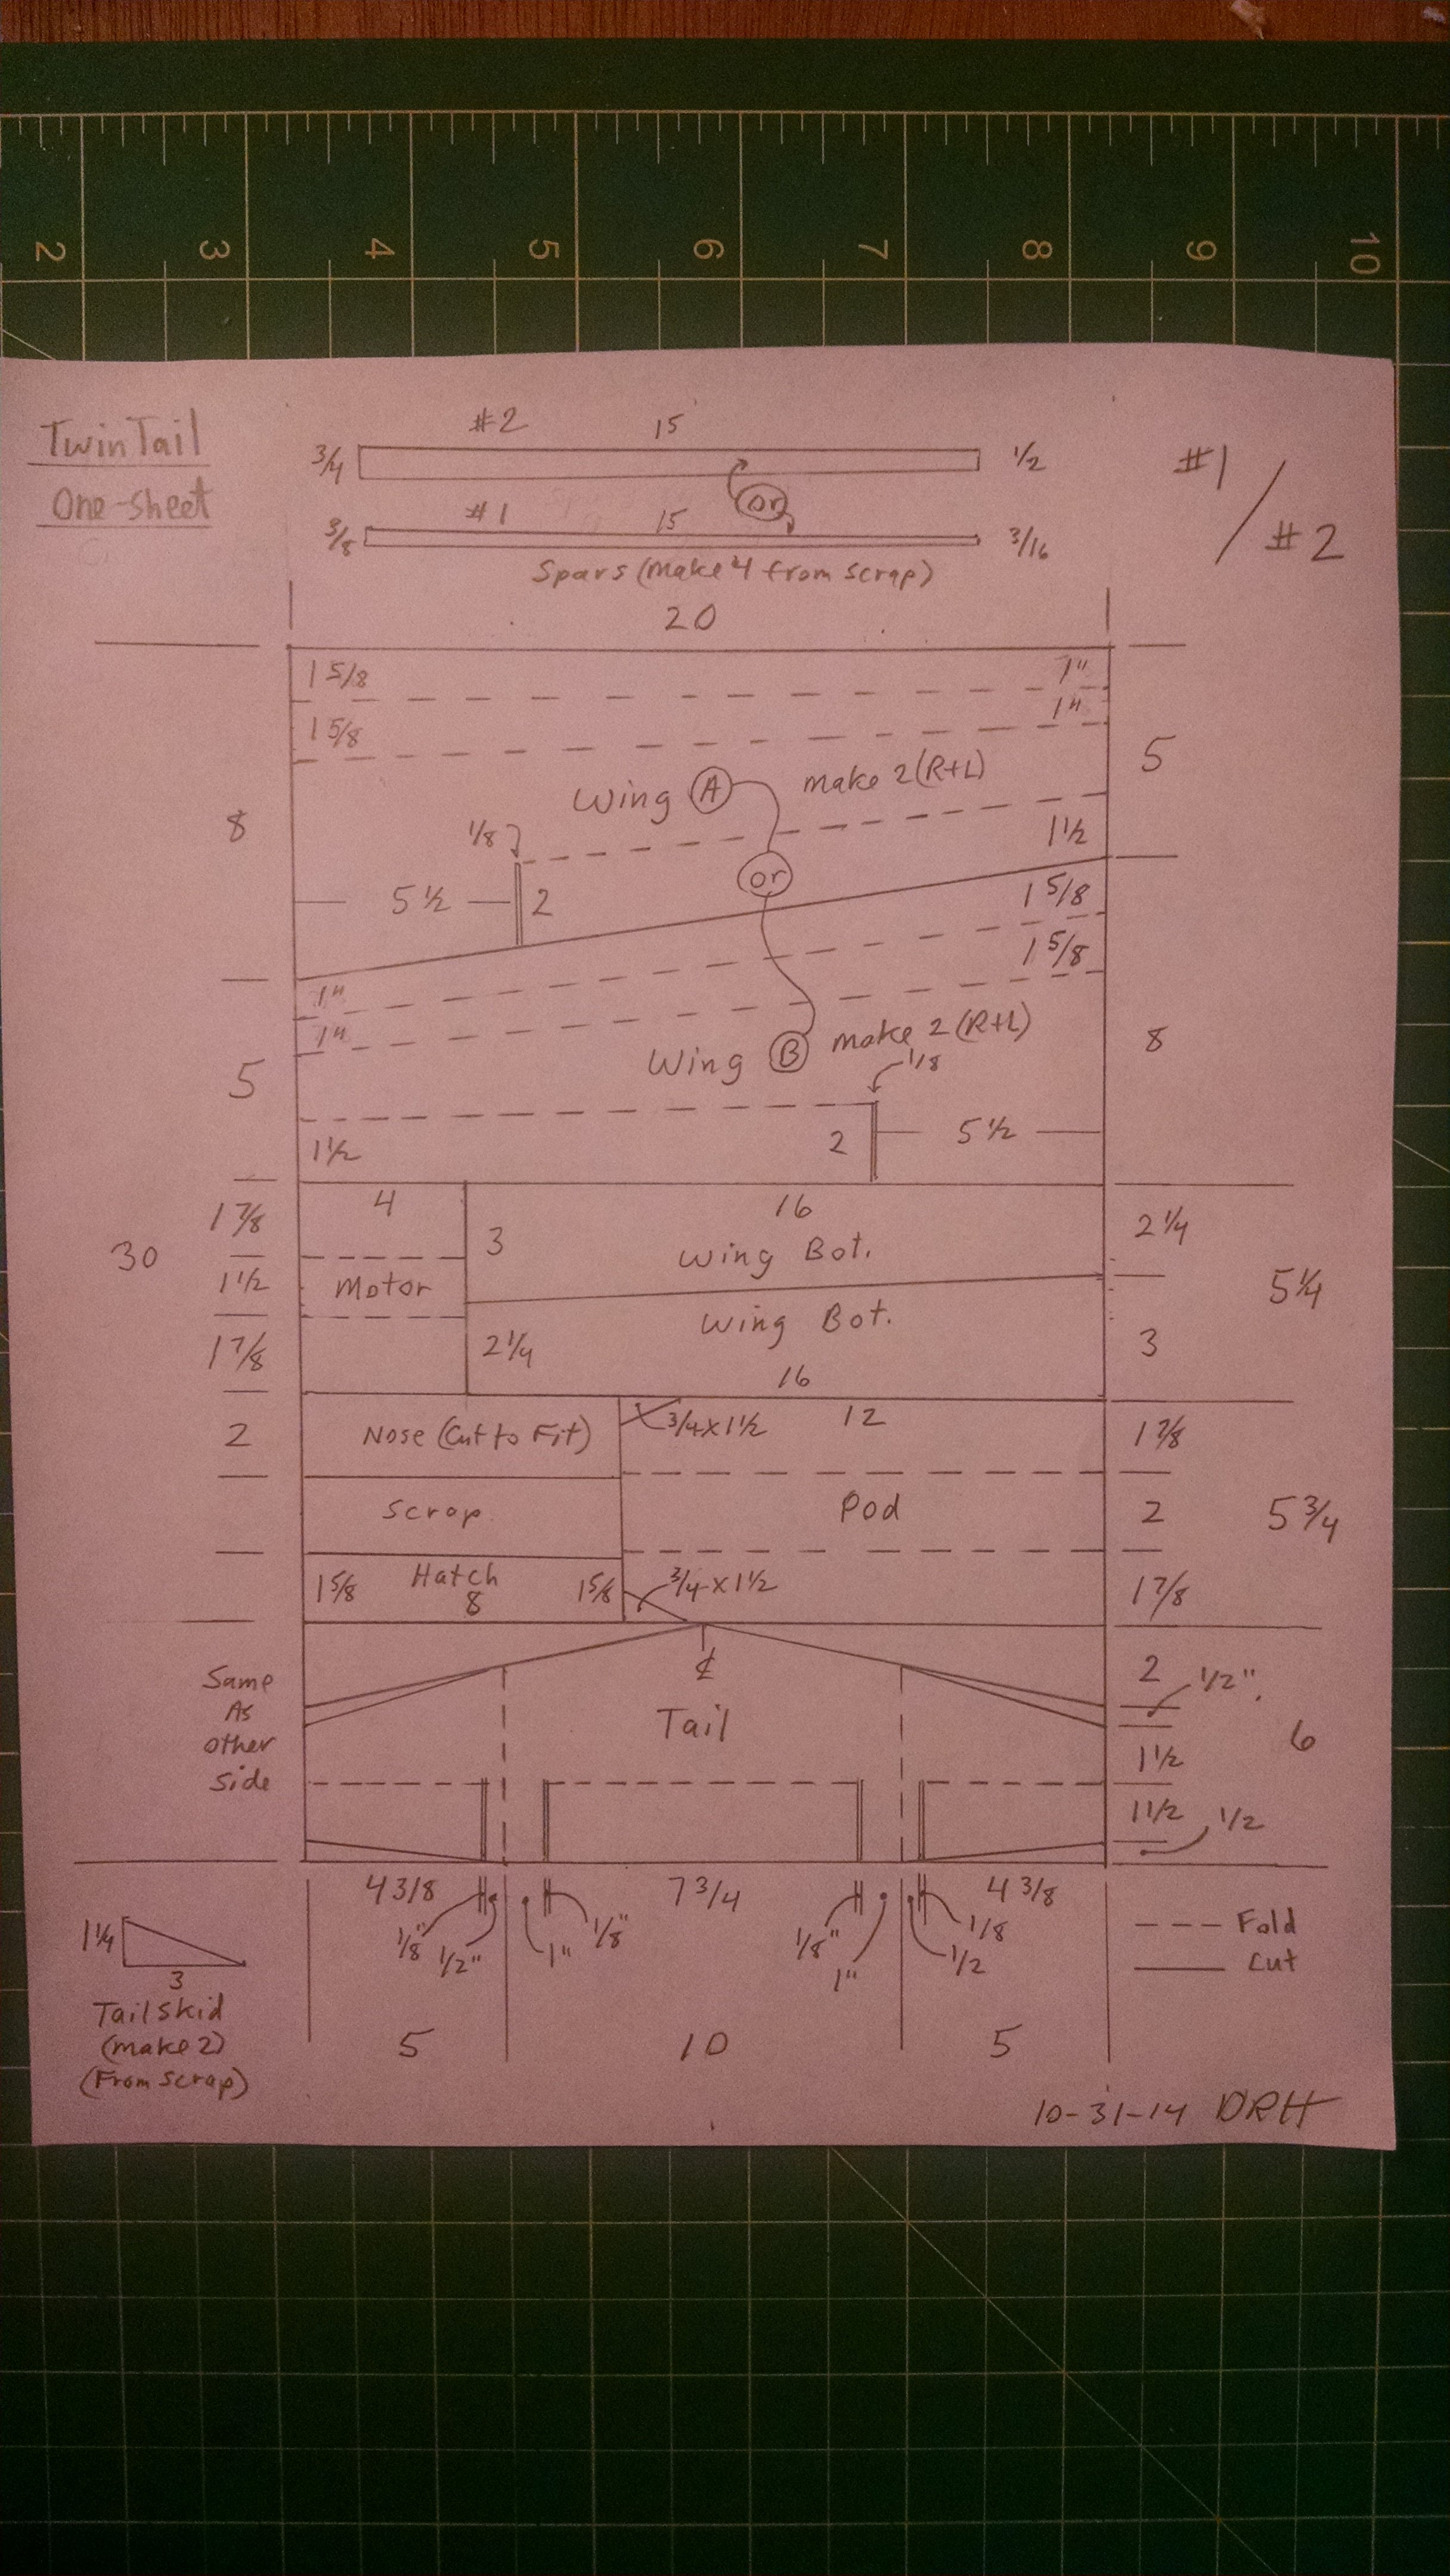 2 3 4 5 6 7 8 9 10
TwinTail
One-Sheet
#2 15
3/4 1/2
or
#1 15
3/8 3/16
Spars (make 4 from scrap)
#1 / #2
20
1 5/8 1"
1 5/8 1"
Wing A make 2 (R+L)
5
8
1/8
1 1/2
or
5 1/2 2
1 5/8
1 5/8
1"
1"
Wing B make 2 (R+L)
8
1/8
5
2 5 1/2
1 1/2
4 16
1 7/8 3 Wing Bot. 2 1/4
30
1 1/2 Motor 5 1/4
Wing Bot.
1 7/8 2 1/4 3
16
3/4 x 1 1/2 12
2 Nose (Cut to Fit) 1 7/8
Scrap Pod 2 5 3/4
1 5/8 Hatch 8 1 5/8 3/4 x 1 1/2 1 7/8
℄
Same
As
other
side
Tail
2 1/2"
1 1/2 6
1 1/2 1/2
4 3/8 7 3/4 4 3/8
1/8" 1/2" 1" 1/8" 1/8" 1" 1/2 1/8
1 1/4
3
Tail Skid
(make 2)
(From Scrap)
Fold
Cut
5 10 5
10-31-14 DRH